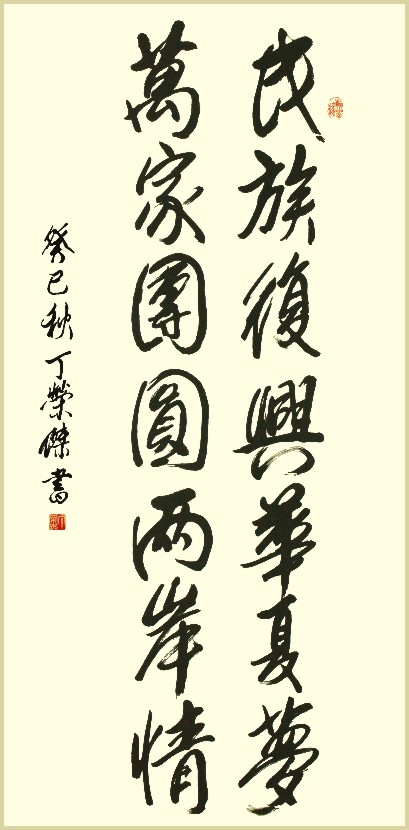 民族復興華夏夢
萬家團圓兩岸情
癸巳秋丁榮傑書